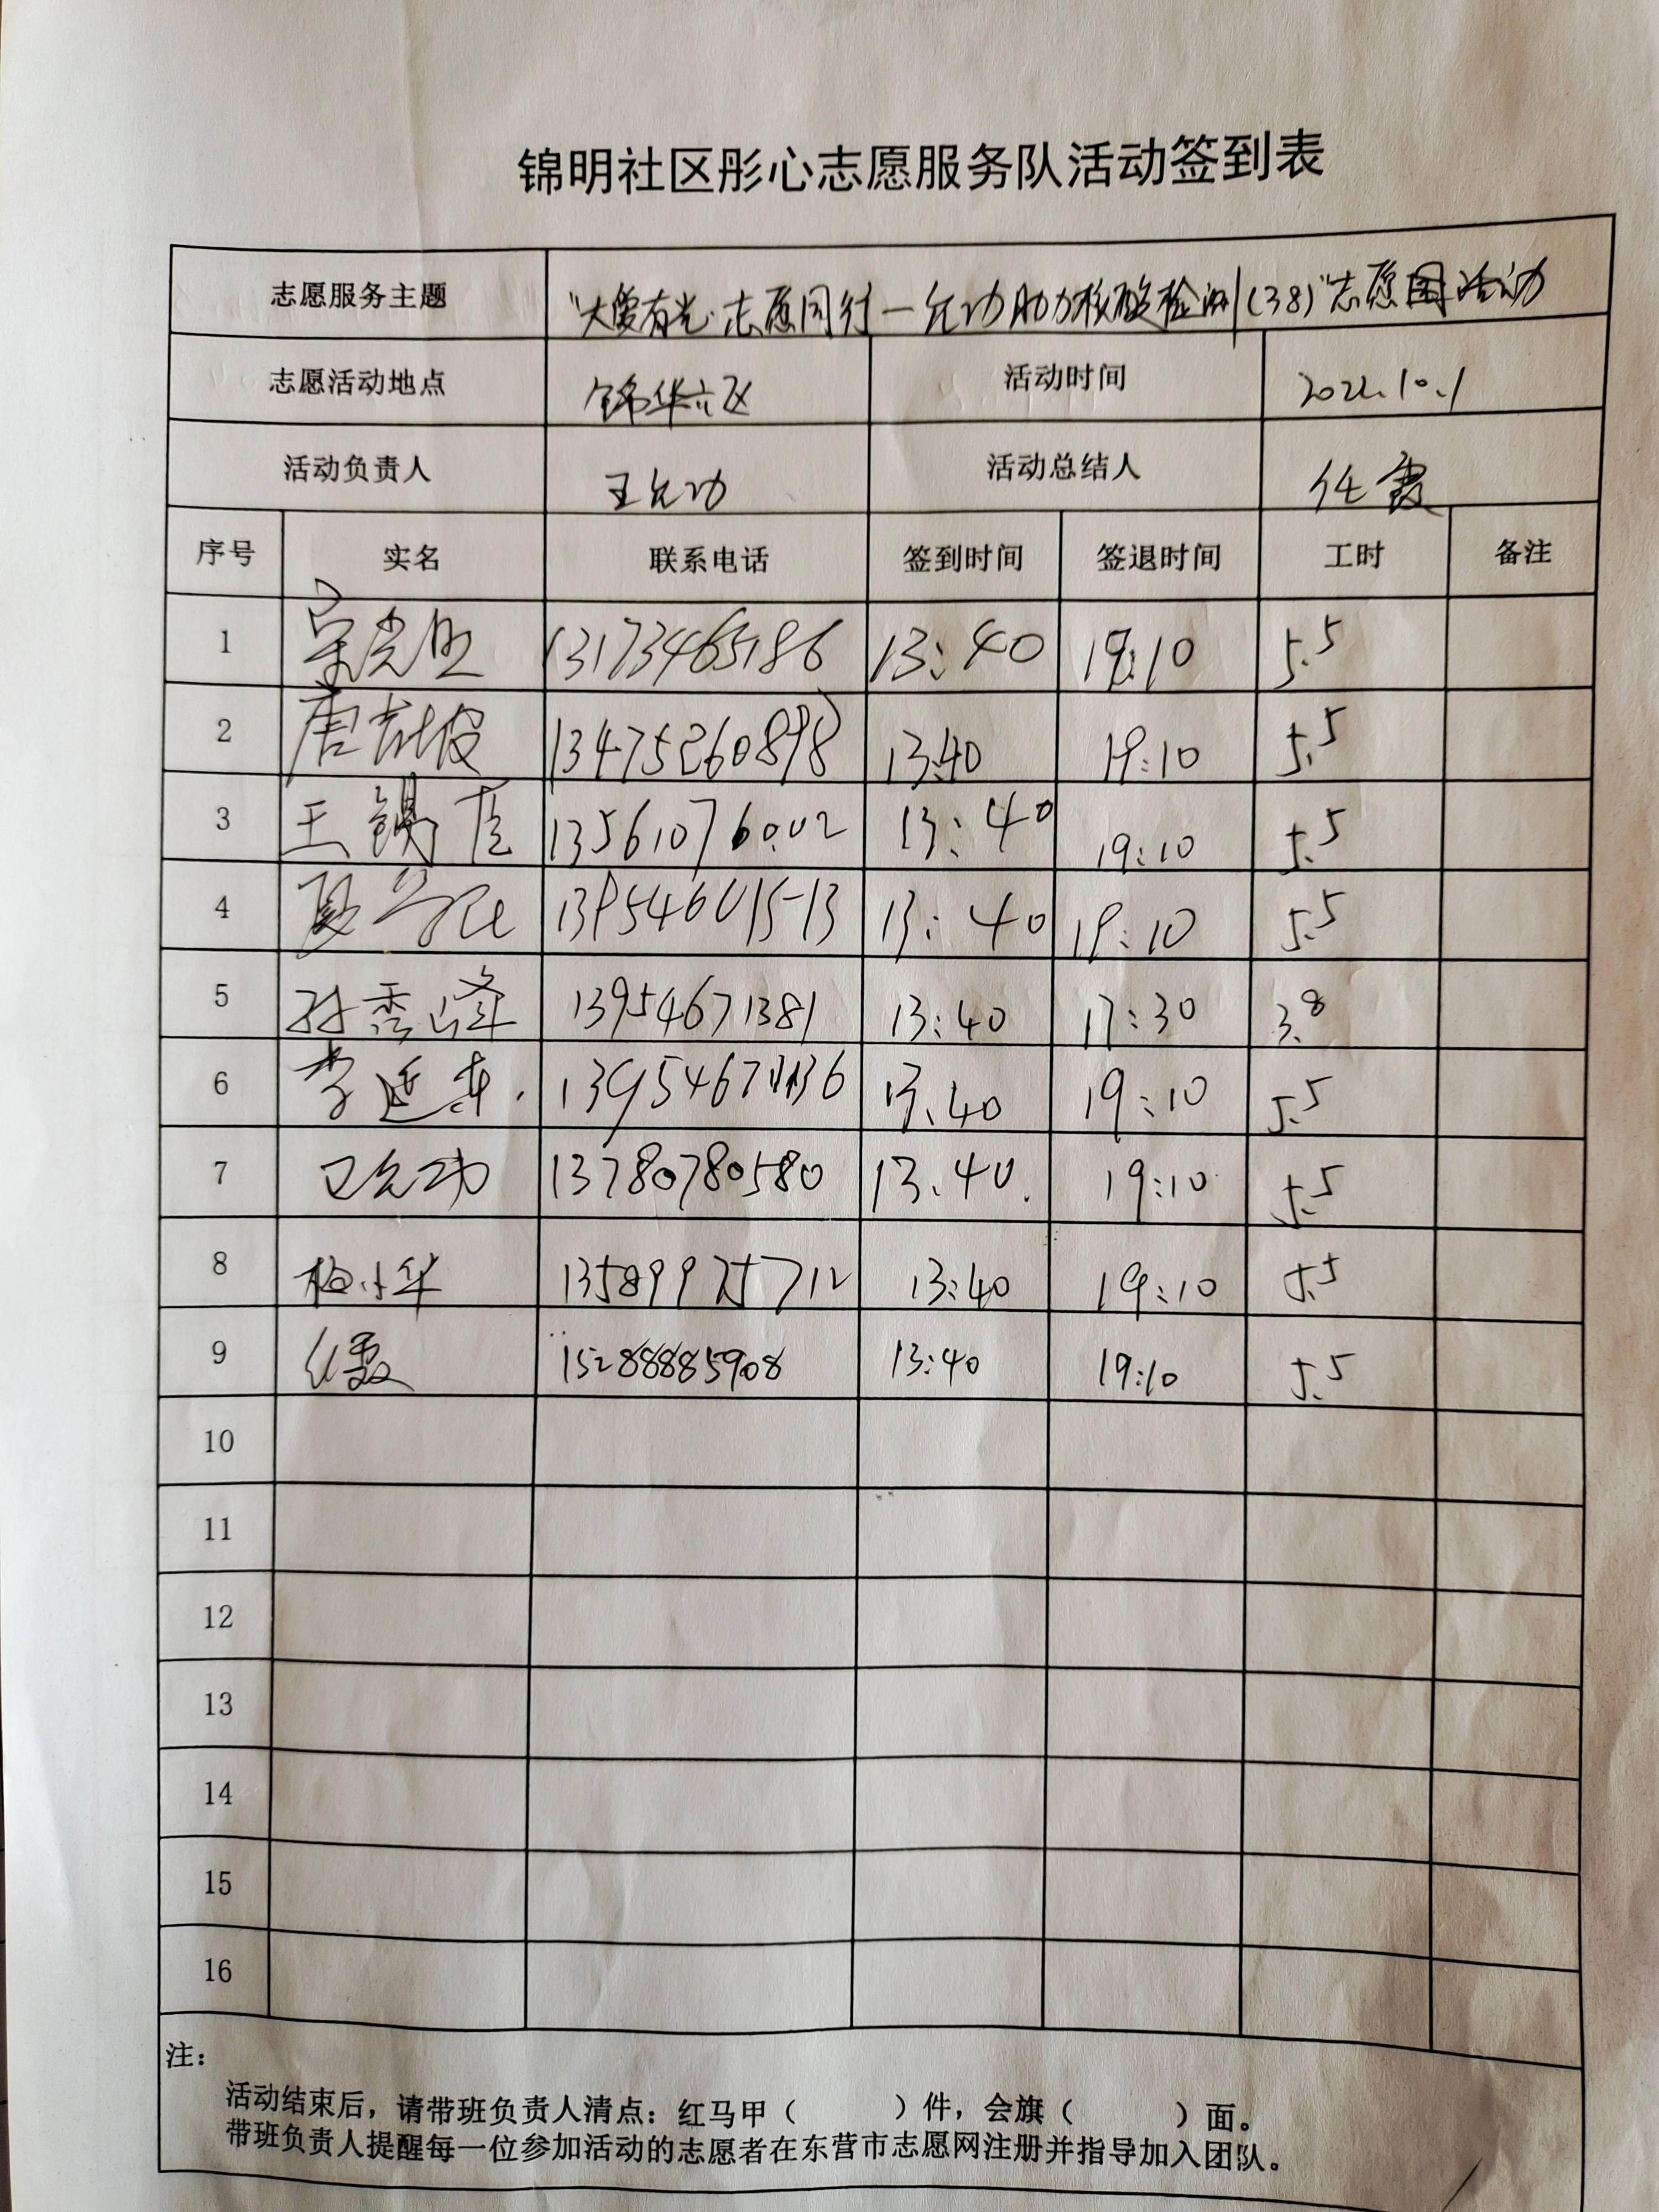 锦明社区彤心志愿服务队活动签到表
志愿服务主题 "大爱有光·志愿同行—允功助力核酸检测(38)"志愿团活动
志愿活动地点 锦华六区 活动时间 2022.10.1
活动负责人 王允功 活动总结人 任霞
序号 实名 联系电话 签到时间 签退时间 工时 备注
1 13173465186 13:40 19:10 5.5
2 13475260898 13:40 19:10 5.5
3 王锡臣 13561076002 13:40 19:10 5.5
4 13954601513 13:40 19:10 5.5
5 孙秀峰 13954671381 13:40 17:30 3.8
6 李延东 13:40 19:10 5.5
7 王允功 13780780580 13.40. 19:10 5.5
8 杨小华 13589975712 13:40 19:10 5.5
9 任霞 15288885908 13:40 19:10 5.5
10
11
12
13
14
15
16
注:
活动结束后，请带班负责人清点：红马甲（ ）件，会旗（ ）面。
带班负责人提醒每一位参加活动的志愿者在东营市志愿网注册并指导加入团队。